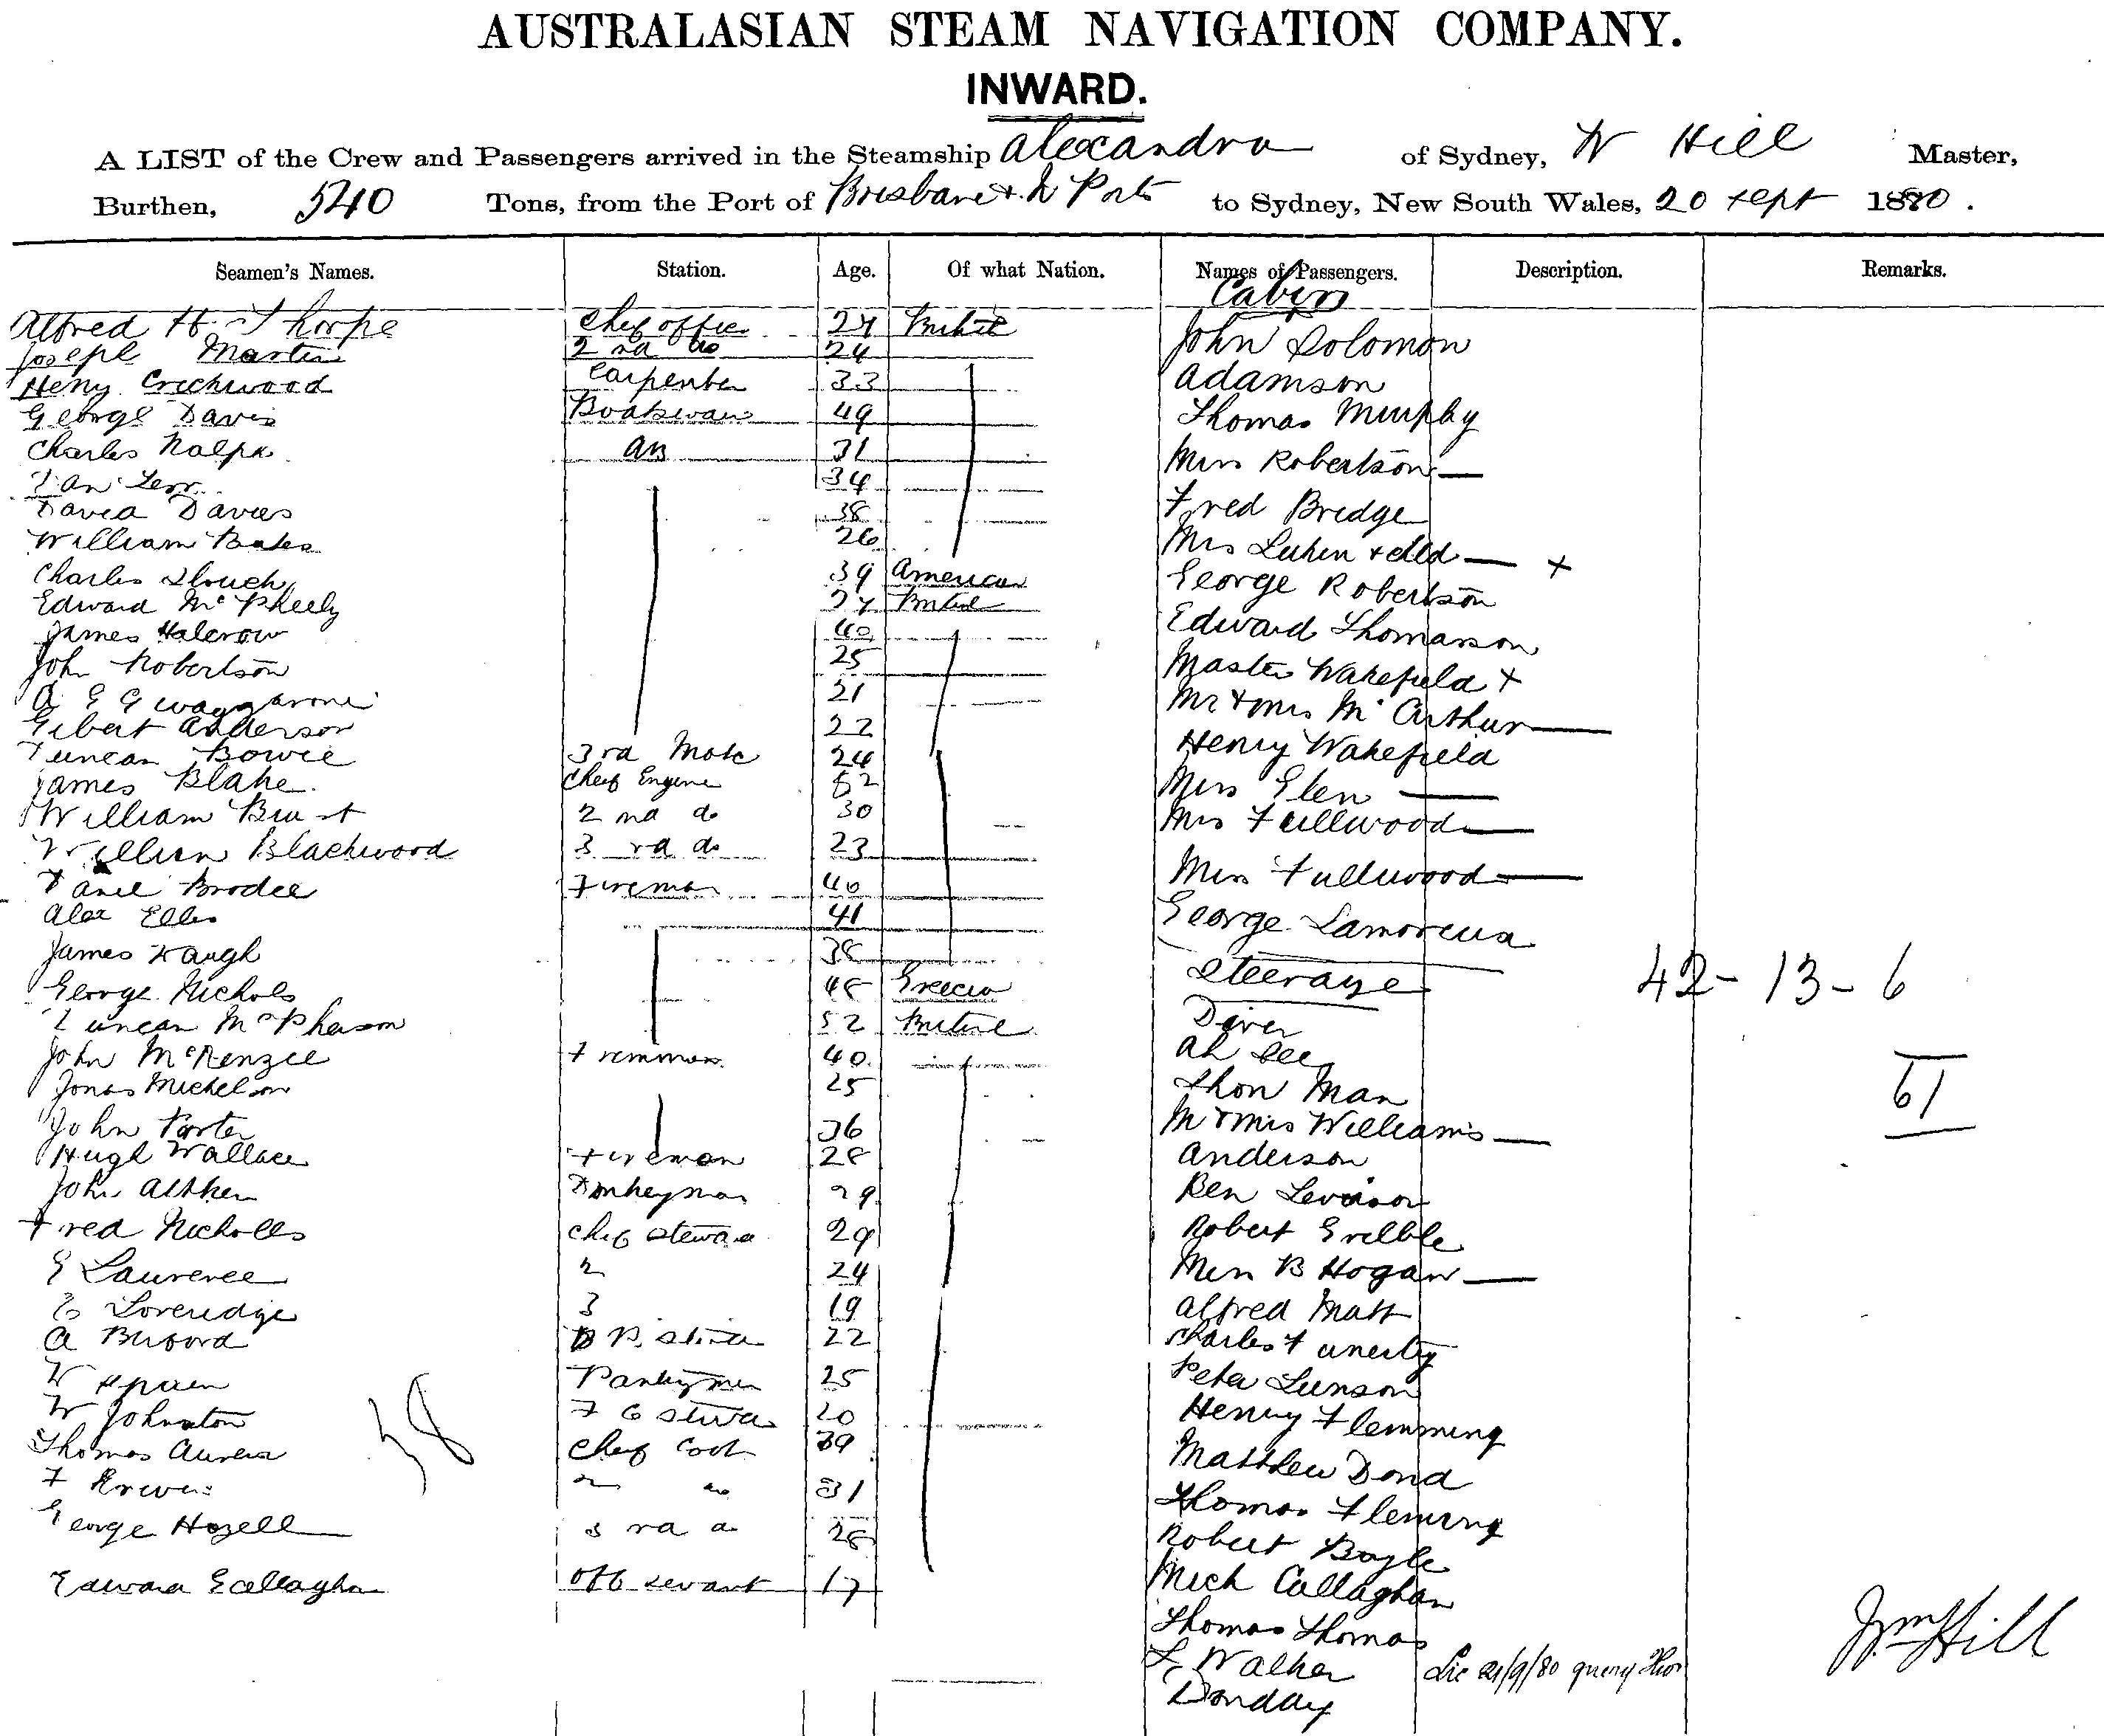 AUSTRALASIAN STEAM NAVIGATION COMPANY.
INWARD.
A LIST of the Crew and Passengers arrived in the Steamship Alexandra of Sydney, W Hill Master,
Burthen, 540 Tons, from the Port of Brisbane & N Ports to Sydney, New South Wales, 20 Sept 1880.
Seamen's Names. Station. Age. Of what Nation. Names of Passengers. Description. Remarks.
Cabin
Alfred H. Thorpe Chef officer 27 British John Solomon
Joseph Martin 2nd do 24
Heny Crichwood Carpenter 33 Adamson
George Davis Boatswain 49 Thomas Murphy
Charles Ralph AB 31 Miss Robertson —
34
David Davies 38 Fred Bridge
William Bates 26 Mrs Luhen & child — +
Charles Slouch 39 American George Robertson
Edward McPheely 27 British
James Halcrow 40 Edward Thomason
John Robertson 25 Master Wakefield +
21 Mr & Mrs McArthur —
Gilbert Anderson 22
Duncan Bowie 3rd Mate 24 Henry Wakefield
James Blake Chef Engine 52 Miss Glen —
William 2nd do 30 Mrs Fullwood —
William Blackwood 3rd do 23 Miss Fullwood —
Daniel Brodie Fireman 40
Alex Ellis 41 George Lamoreux
James Waugh 38
Steerage 42-13-6
George Nichols 48 Grecia
Duncan McPherson 52 British Diver
John McKenzie Fireman 40 Ah See
Jonas Michelson 25 Thon Man 61
John Porter 36 Mr & Mrs Williams —
Hugh Wallace Fireman 28 Anderson
John Aitken Donkeyman 29 Ben Levinson
Fred Nicholls Chef Steward 29 Robert Gribble
E Laurence 2 24 Miss B Hogan —
E Loveridge 3 19 Alfred Matt
A 22 Charles
W Spain Pantryman 25 Peter Lunson
W Johnston 20 Henry Flemming
38
Thomas Chef Cook 39 Matthew Dond
F 31 Thomas Fleming
George Hozell 3rd 28 Robert Boyle
Edward Callaghan off servant 17 Mich Callaghan
Thomas Thomas
L Walker Lic 21/9/80 query
Donday
Wm Hill